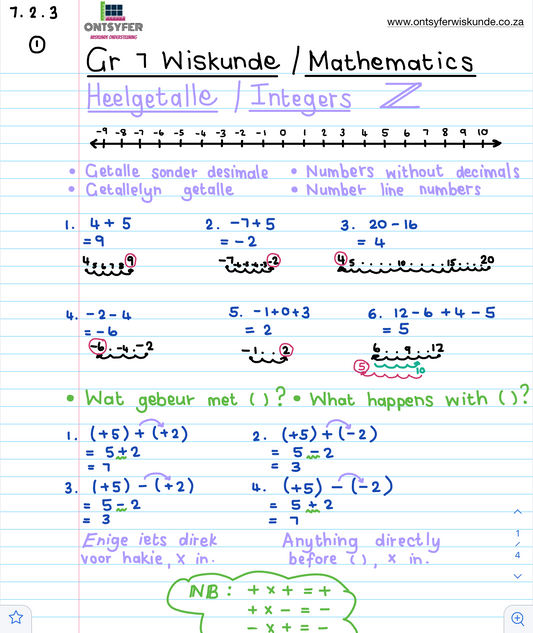 7.2.3
www.ontsyferwiskunde.co.za
ONTSYFER
WISKUNDE ONDERSTEUNING
1
Gr 7 Wiskunde / Mathematics
Heelgetalle / Integers ℤ
-9 -8 -7 -6 -5 -4 -3 -2 -1 0 1 2 3 4 5 6 7 8 9 10
• Getalle sonder desimale • Numbers without decimals
• Getallelyn getalle • Number line numbers
1. 4 + 5 2. -7 + 5 3. 20 - 16
= 9 = -2 = 4
4 5 6 7 8 9 -7 -6 -5 -4 -3 -2 4 5 10 15 20
4. -2 - 4 5. -1 + 0 + 3 6. 12 - 6 + 4 - 5
= -6 = 2 = 5
-6 -4 -2 -1 2 6 9 12
5 10
• Wat gebeur met ( )? • What happens with ( )?
1. (+5) + (+2) 2. (+5) + (-2)
= 5 + 2 = 5 - 2
= 7 = 3
3. (+5) - (+2) 4. (+5) - (-2)
= 5 - 2 = 5 + 2
= 3 = 7
Enige iets direk Anything directly
voor hakie, x in. before ( ), x in.
NB: + x + = +
+ x - = -
- x + = -
1
/
4